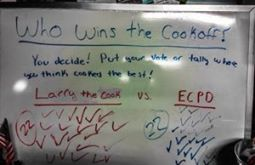 Who Wins the Cookoff?
You decide! Put your vote or tally where
you think cooked the best!
Larry the Cook vs. ECPD
22 22